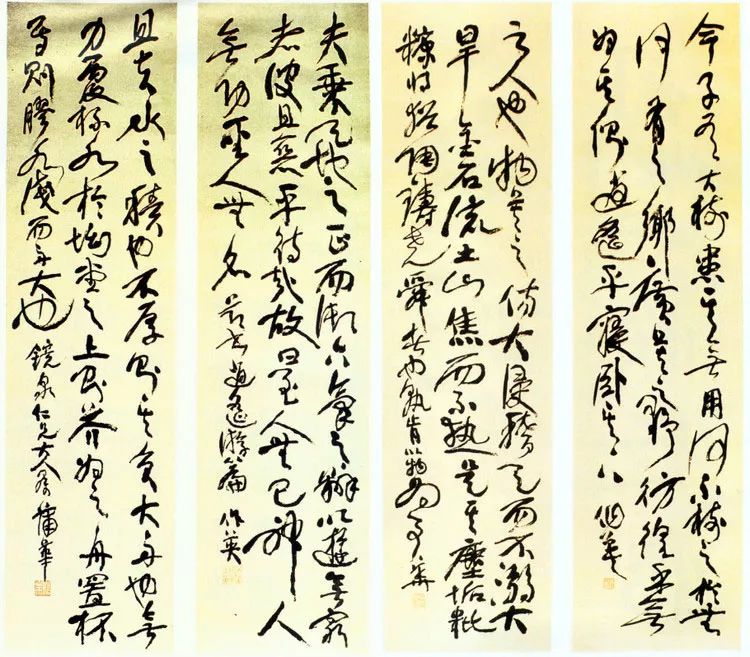 今子有大樹患其無用何不樹之於無
何有之鄉廣莫之野彷徨乎無
為其側逍遙乎寢卧其下
之人也物莫之傷大浸稽天而不溺大
旱金石流土山焦而不熱是其塵垢粃
糠將猶陶鑄堯舜者也孰肯以物為事 華
夫乘天地之正而御六氣之辯以遊無窮
者彼且惡乎待哉故曰至人無己神人
無功聖人無名 逍遙游篇 作英
且夫水之積也不厚則其負大舟也無
力覆杯水於坳堂之上則芥為之舟置杯
焉則膠水淺而舟大也 鏡泉仁兄大人屬 蒲華